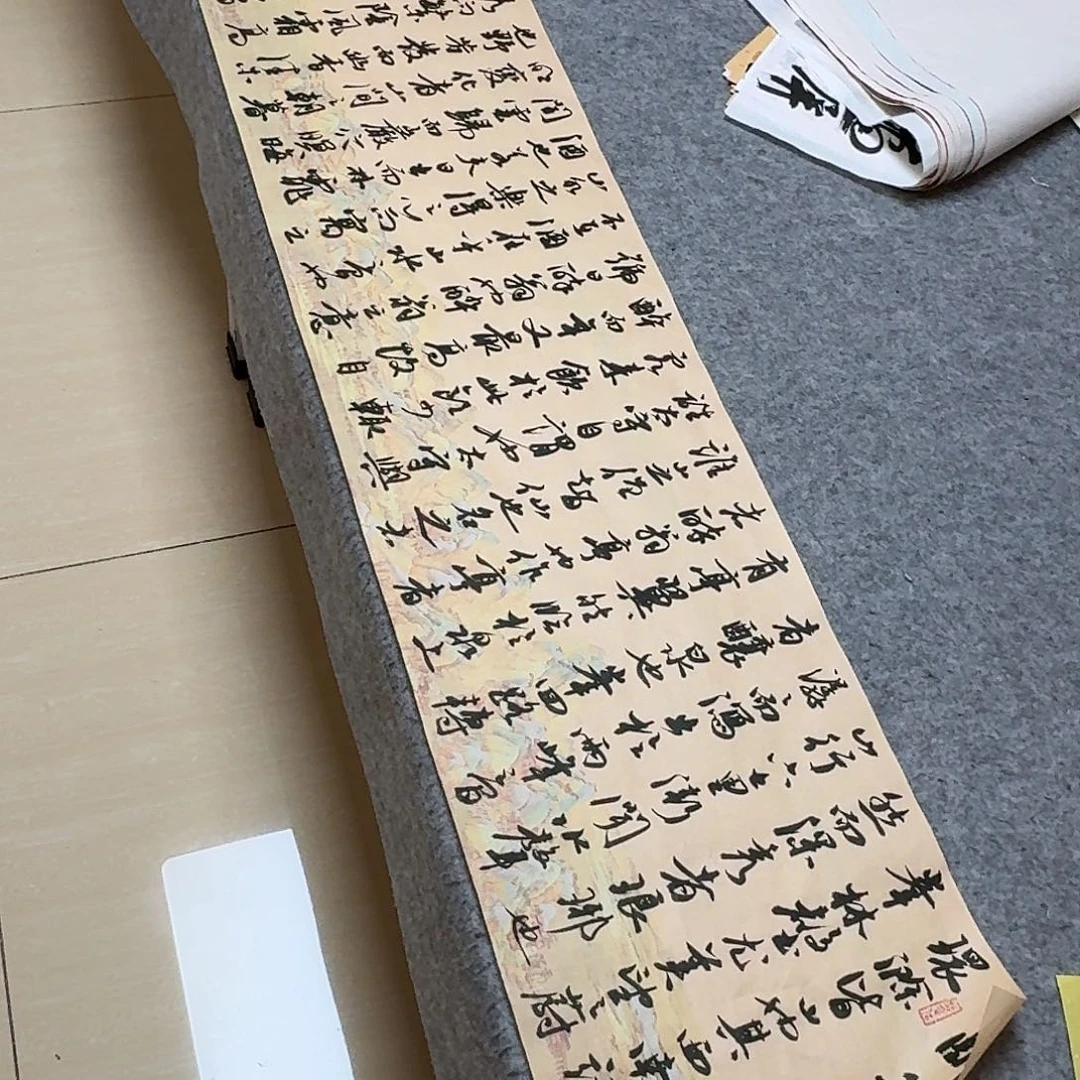 環滁皆山也其西南諸
峯林壑尤美望之蔚
然而深秀者琅琊也
山行六七里漸聞水聲
潺々而瀉出於兩峰之間
者釀泉也峯回路轉
有亭翼然臨於泉上
者醉翁亭也作亭者
誰山之僧智仙也名之者
誰太守自謂也太守與
客來飲於此飲少輒
醉而年又最高故自
號曰醉翁也醉翁之意
不在酒在乎山水之間也
山水之樂得之心而寓之
酒也若夫日出而林霏
開雲歸而巖穴暝晦
明變化者山間之朝暮
也野芳發而幽香佳木
秀而繁陰風霜高